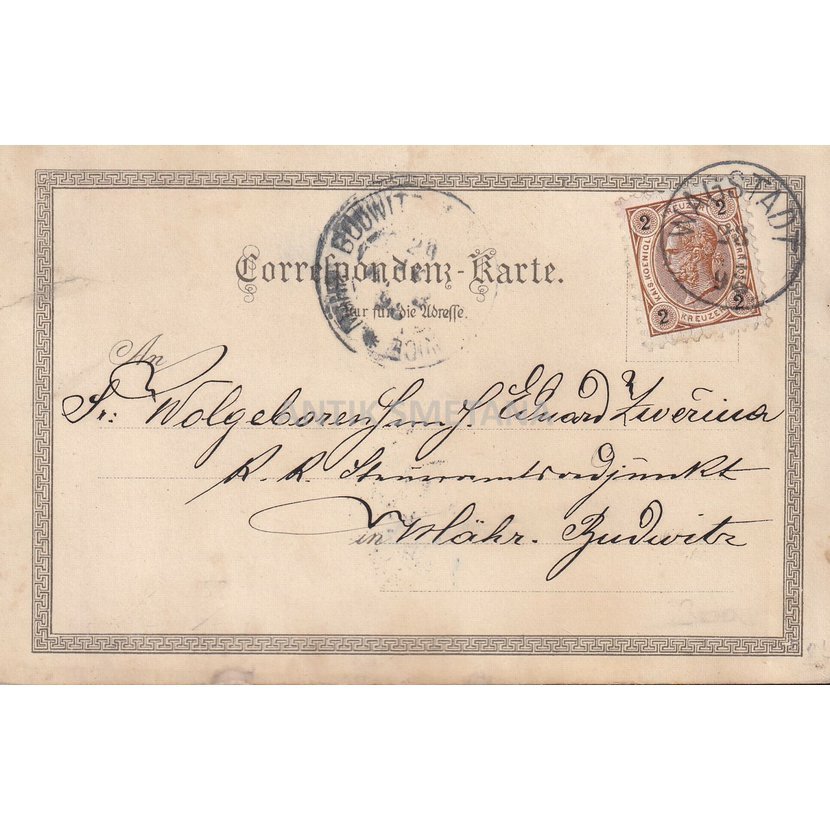 Correspondenz-Karte.
Nur für die Adresse.
MÄHR. BUDWITZ
WAGSTADT
2 2
KREUZER
2 2
An
Sr: Wolgeboren Herrn H. Eduard Zwěrina
K. K. Steueramtsadjunkt
in Mähr. Budwitz
ANTIK SMETANA